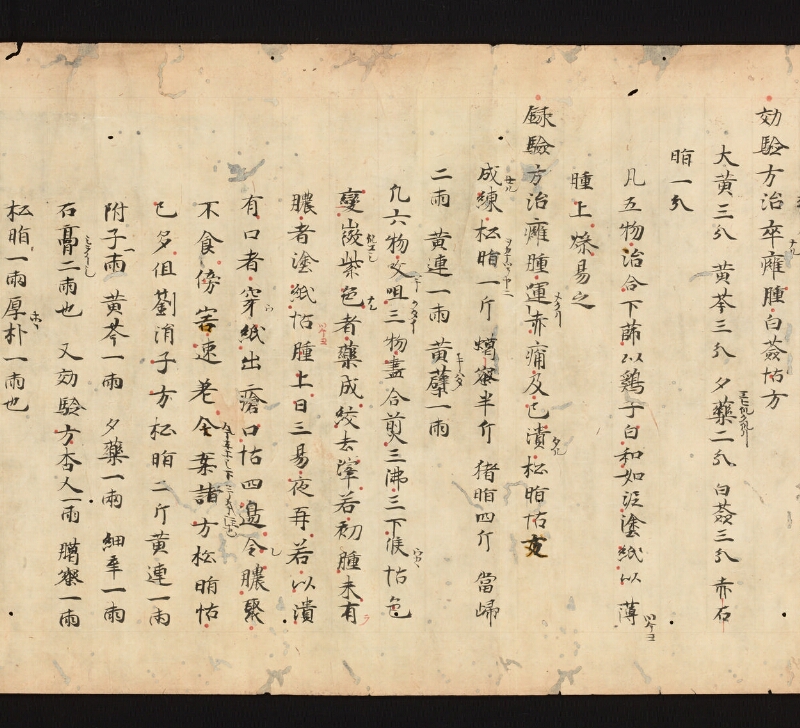 効驗方治卒癰腫白蘞怗方
大黄三分 黄芩三分 夕藥二分 白蘞三分 赤石
脂一分
凡五物治合下篩以鷄子白和如泥塗紙以薄
腫上燥易之
録驗方治癰腫運赤痛及已潰松脂怗方
成練松脂一斤 蠟蜜半斤 猪脂四斤 當歸
二兩 黄連一兩 黄蘗一兩
凡六物㕮咀三物盡合煎三沸三下候怗色
變凝紫色者藥成絞去滓若初腫未有
膿者塗紙怗腫上日三易夜再若以潰
有口者穿紙出瘡口怗四邊令膿聚
不食傍害速老 諸方松脂怗
已多但劉涓子方松脂二斤黄連一兩
附子一兩 黄芩一兩 夕藥一兩 細辛一兩
石膏二兩也 又効驗方杏人一兩 臈蜜一兩
松脂一兩厚朴一兩也